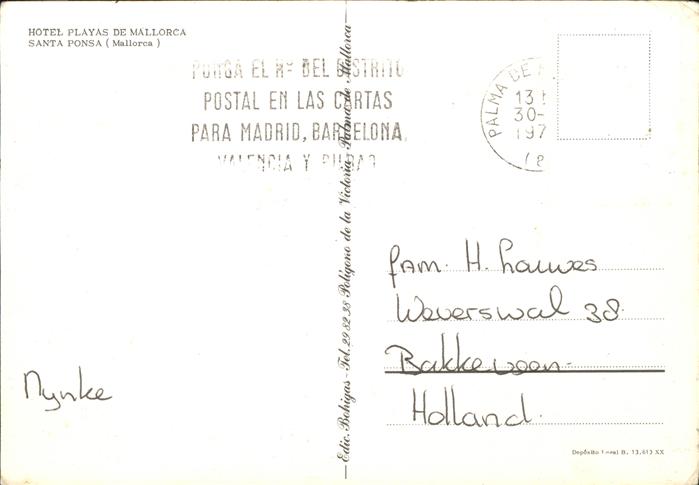 HOTEL PLAYAS DE MALLORCA
SANTA PONSA ( Mallorca )
PONGA EL Nº DEL DISTRITO
POSTAL EN LAS CARTAS
PARA MADRID, BARCELONA,
VALENCIA Y BILBAO
PALMA DE
13 
30-
197
(8
Edic. Bohigas - Tel. 29.82.38 Polígono de la Victoria - Palma de Mallorca
fam. H. Lauwes
Weverswal 38
Bakkeveen
Holland.
Nynke
Depósito Legal B. 13.613 XX